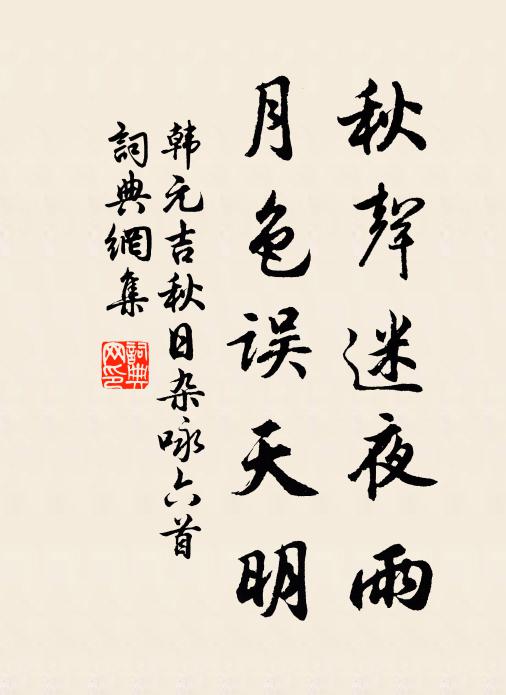 秋聲迷夜雨
月色误天明
韩元吉秋日杂咏六首
詞典網集
詞典网印